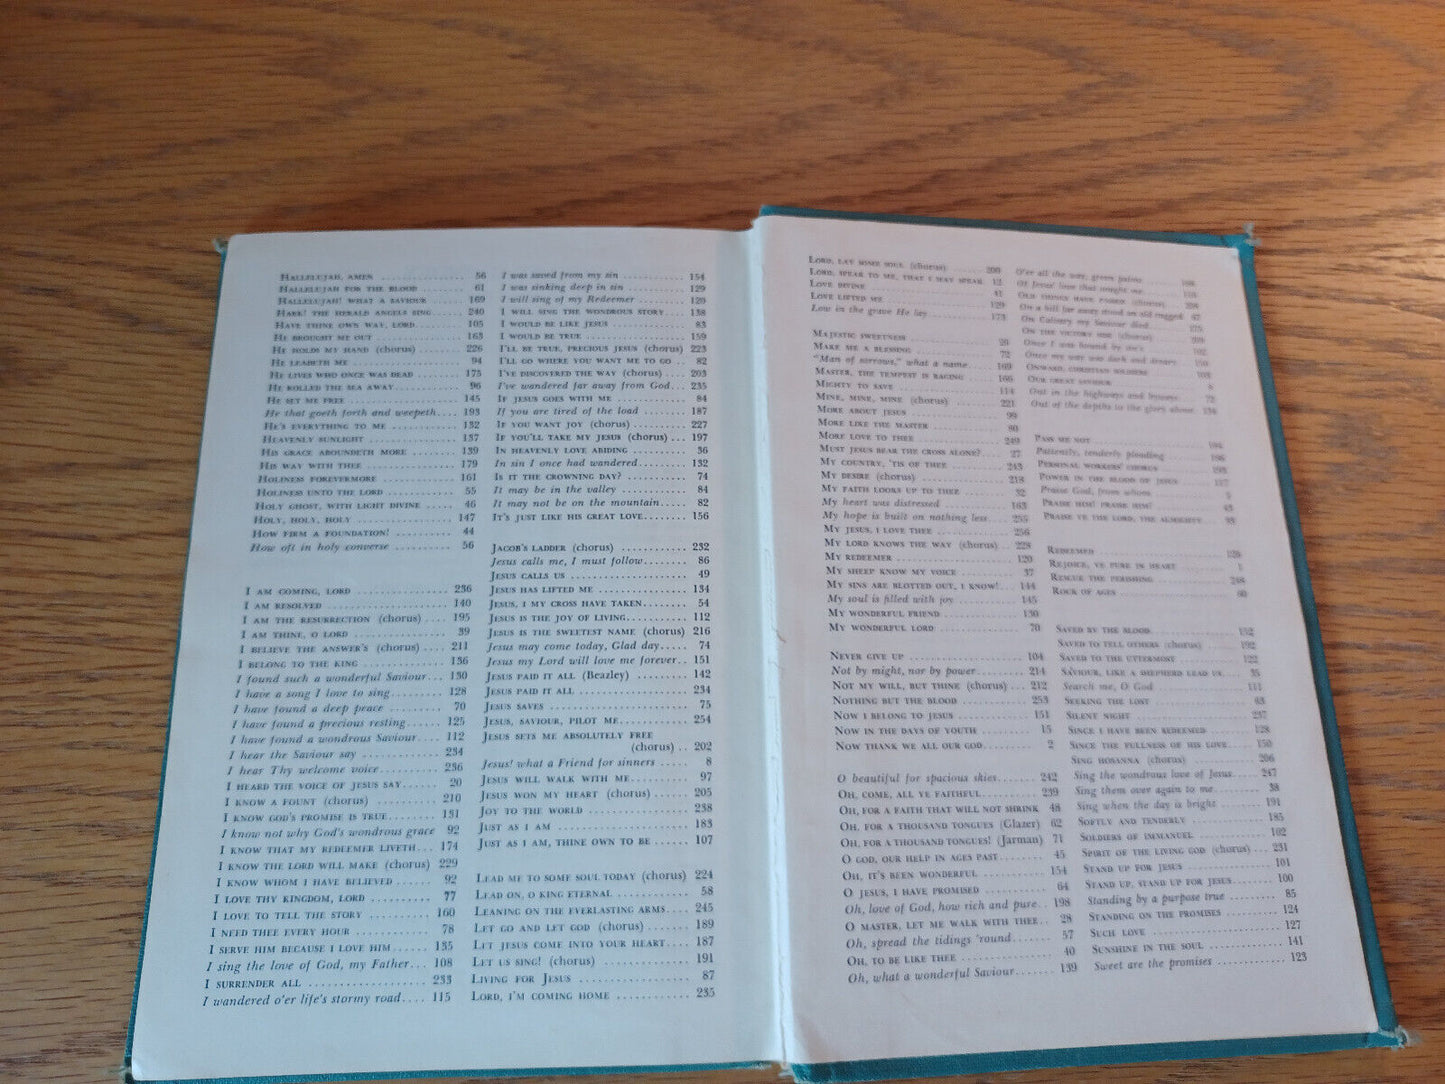 HALLELUJAH, AMEN .......... 56
HALLELUJAH FOR THE BLOOD .......... 61
HALLELUJAH! WHAT A SAVIOUR .......... 169
HARK! THE HERALD ANGELS SING .......... 240
HAVE THINE OWN WAY, LORD .......... 105
HE BROUGHT ME OUT .......... 163
HE HOLDS MY HAND (chorus) .......... 226
HE LEADETH ME .......... 94
HE LIVES WHO ONCE WAS DEAD .......... 175
HE ROLLED THE SEA AWAY .......... 96
HE SET ME FREE .......... 145
He that goeth forth and weepeth .... 193
HE'S EVERYTHING TO ME .......... 132
HEAVENLY SUNLIGHT .......... 137
HIS GRACE ABOUNDETH MORE .......... 139
HIS WAY WITH THEE .......... 179
HOLINESS FOREVERMORE .......... 161
HOLINESS UNTO THE LORD .......... 55
HOLY GHOST, WITH LIGHT DIVINE ..... 46
HOLY, HOLY, HOLY .......... 147
HOW FIRM A FOUNDATION! .......... 44
How oft in holy converse .......... 56
I AM COMING, LORD .......... 236
I AM RESOLVED .......... 140
I AM THE RESURRECTION (chorus) .... 195
I AM THINE, O LORD .......... 39
I BELIEVE THE ANSWER'S (chorus) .... 211
I BELONG TO THE KING .......... 136
I found such a wonderful Saviour ... 130
I have a song I love to sing ....... 128
I have found a deep peace .......... 70
I have found a precious resting ...... 125
I have found a wonderful Saviour ... 112
I hear the Saviour say .......... 234
I hear Thy welcome voice .......... 236
I HEARD THE VOICE OF JESUS SAY ...... 20
I KNOW A FOUNT (chorus) .......... 210
I KNOW GOD'S PROMISE IS TRUE ....... 131
I know not why God's wondrous grace 92
I KNOW THAT MY REDEEMER LIVETH ... 174
I KNOW THE LORD WILL MAKE (chorus) 229
I KNOW WHOM I HAVE BELIEVED ...... 92
I LOVE THY KINGDOM, LORD .......... 77
I LOVE TO TELL THE STORY .......... 160
I NEED THEE EVERY HOUR .......... 78
I SERVE HIM BECAUSE I LOVE HIM ...... 135
I sing the love of God, my Father ... 108
I SURRENDER ALL .......... 233
I wandered o'er life's stormy road .... 115
I was saved from my sin .......... 154
I was sinking deep in sin .......... 129
I will sing of my Redeemer .......... 120
I WILL SING THE WONDROUS STORY ..... 138
I WOULD BE LIKE JESUS .......... 83
I WOULD BE TRUE .......... 159
I'LL BE TRUE, PRECIOUS JESUS (chorus) 223
I'LL GO WHERE YOU WANT ME TO GO .. 82
I'VE DISCOVERED THE WAY (chorus) .... 203
I've wandered far away from God ... 235
IF JESUS GOES WITH ME .......... 84
If you are tired of the load ........ 187
IF YOU WANT JOY (chorus) .......... 227
IF YOU'LL TAKE MY JESUS (chorus) ... 197
IN HEAVENLY LOVE ABIDING .......... 36
In sin I once had wandered ......... 132
IS IT THE CROWNING DAY? .......... 74
It may be in the valley .......... 84
It may not be on the mountain ..... 82
IT'S JUST LIKE HIS GREAT LOVE ........ 156
JACOB'S LADDER (chorus) .......... 232
Jesus calls me, I must follow ........ 86
JESUS CALLS US .......... 49
JESUS HAS LIFTED ME .......... 134
JESUS, I MY CROSS HAVE TAKEN ........ 54
JESUS IS THE JOY OF LIVING .......... 112
JESUS IS THE SWEETEST NAME (chorus) 216
Jesus may come today, Glad day ..... 74
Jesus my Lord will love me forever .. 151
JESUS PAID IT ALL (Beazley) ......... 142
JESUS PAID IT ALL .......... 234
JESUS SAVES .......... 75
JESUS, SAVIOUR, PILOT ME .......... 254
JESUS SETS ME ABSOLUTELY FREE
(chorus) .. 202
Jesus! what a Friend for sinners ..... 8
JESUS WILL WALK WITH ME .......... 97
JESUS WON MY HEART (chorus) ...... 205
JOY TO THE WORLD .......... 238
JUST AS I AM .......... 183
JUST AS I AM, THINE OWN TO BE ..... 107
LEAD ME TO SOME SOUL TODAY (chorus) 224
LEAD ON, O KING ETERNAL .......... 58
LEANING ON THE EVERLASTING ARMS .... 245
LET GO AND LET GOD (chorus) ....... 189
LET JESUS COME INTO YOUR HEART .... 187
LET US SING! (chorus) .......... 191
LIVING FOR JESUS .......... 87
LORD, I'M COMING HOME .......... 235
LORD, LAY SOME SOUL (chorus) ....... 200
LORD, SPEAK TO ME, THAT I MAY SPEAK 12
LOVE DIVINE .......... 41
LOVE LIFTED ME .......... 129
Low in the grave He lay .......... 173
MAJESTIC SWEETNESS .......... 29
MAKE ME A BLESSING .......... 72
"Man of sorrows," what a name ..... 169
MASTER, THE TEMPEST IS RAGING ..... 166
MIGHTY TO SAVE .......... 114
MINE, MINE, MINE (chorus) ......... 221
MORE ABOUT JESUS .......... 99
MORE LIKE THE MASTER .......... 80
MORE LOVE TO THEE .......... 249
MUST JESUS BEAR THE CROSS ALONE? .... 27
MY COUNTRY, 'TIS OF THEE .......... 243
MY DESIRE (chorus) .......... 218
MY FAITH LOOKS UP TO THEE ........ 32
My heart was distressed .......... 163
My hope is built on nothing less .... 255
MY JESUS, I LOVE THEE .......... 256
MY LORD KNOWS THE WAY (chorus) .. 228
MY REDEEMER .......... 120
MY SHEEP KNOW MY VOICE .......... 37
MY SINS ARE BLOTTED OUT, I KNOW! .. 144
My soul is filled with joy .......... 145
MY WONDERFUL FRIEND .......... 130
MY WONDERFUL LORD .......... 70
NEVER GIVE UP .......... 104
Not by might, nor by power ........ 214
NOT MY WILL, BUT THINE (chorus) ... 212
NOTHING BUT THE BLOOD .......... 253
NOW I BELONG TO JESUS .......... 151
NOW IN THE DAYS OF YOUTH ........ 15
NOW THANK WE ALL OUR GOD ........ 2
O beautiful for spacious skies ....... 242
OH, COME, ALL YE FAITHFUL ......... 239
OH, FOR A FAITH THAT WILL NOT SHRINK 48
OH, FOR A THOUSAND TONGUES (Glazer) 62
OH, FOR A THOUSAND TONGUES! (Jarman) 71
O GOD, OUR HELP IN AGES PAST ....... 45
OH, IT'S BEEN WONDERFUL .......... 154
O JESUS, I HAVE PROMISED .......... 64
Oh, love of God, how rich and pure .. 198
O MASTER, LET ME WALK WITH THEE .. 28
Oh, spread the tidings 'round ....... 57
OH, TO BE LIKE THEE .......... 40
Oh, what a wonderful Saviour ....... 139
O'er all the way, green palms
Of Jesus' love that sought me
OUR THINGS HAVE PASSED (chorus)
On a hill far away stood an old rugged 67
On Calvary my Saviour died
ON THE VICTORY SIDE (chorus)
Once I was bound by sin's
Once my way was dark and dreary
ONWARD, CHRISTIAN SOLDIERS .......... 103
OUR GREAT SAVIOUR .......... 8
Out in the highways and byways .... 72
Out of the depths to the glory above 134
PASS ME NOT
Patiently, tenderly pleading .......... 186
PERSONAL WORKERS' CHORUS .......... 193
POWER IN THE BLOOD OF JESUS
Praise God, from whom .......... 5
PRAISE HIM! PRAISE HIM!
PRAISE YE THE LORD, THE ALMIGHTY
REDEEMED
REJOICE, YE PURE IN HEART .......... 1
RESCUE THE PERISHING .......... 248
ROCK OF AGES .......... 60
SAVED BY THE BLOOD .......... 152
SAVED TO TELL OTHERS (chorus) ...... 192
SAVED TO THE UTTERMOST .......... 122
SAVIOUR, LIKE A SHEPHERD LEAD US .... 35
Search me, O God .......... 111
SEEKING THE LOST
SILENT NIGHT .......... 237
SINCE I HAVE BEEN REDEEMED ........ 128
SINCE THE FULLNESS OF HIS LOVE ..... 150
SING HOSANNA (chorus) .......... 206
Sing the wondrous love of Jesus ..... 247
Sing them over again to me ......... 38
Sing when the day is bright ......... 191
SOFTLY AND TENDERLY .......... 185
SOLDIERS OF IMMANUEL .......... 102
SPIRIT OF THE LIVING GOD (chorus) ... 231
STAND UP FOR JESUS .......... 101
STAND UP, STAND UP FOR JESUS ........ 100
Standing by a purpose true ......... 85
STANDING ON THE PROMISES .......... 124
SUCH LOVE .......... 127
SUNSHINE IN THE SOUL .......... 141
Sweet are the promises .......... 123